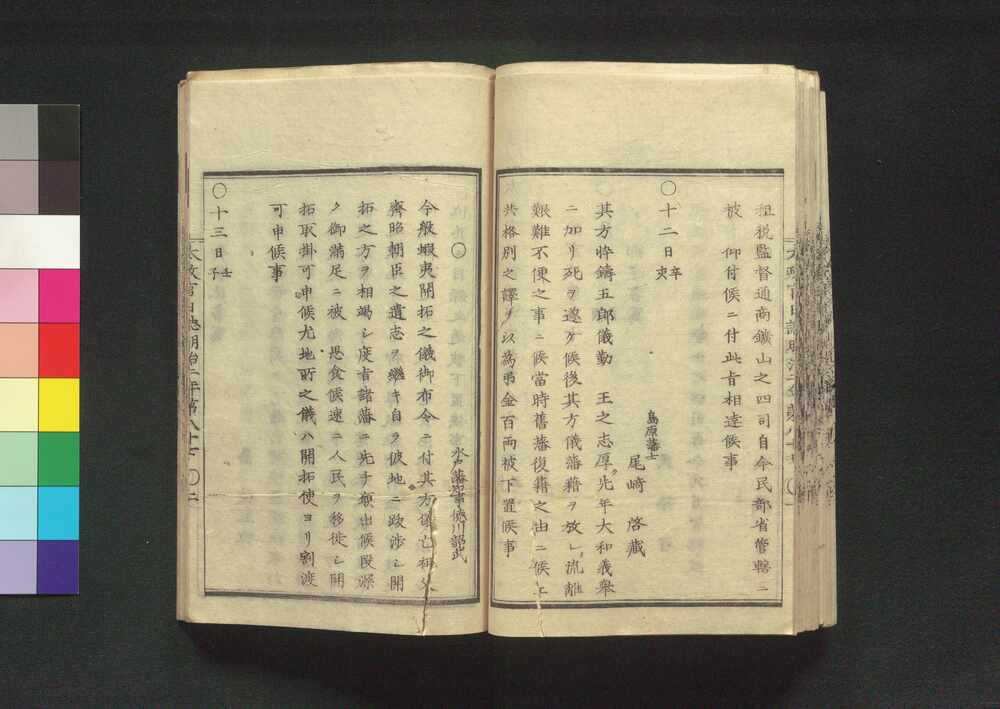 租税監督通商鑛山之四司自今民部省管轄ニ
被　仰付候ニ付此旨相達候事
〇十二日辛亥
島原藩士
尾崎　啓藏
其方忰鑄五郎儀勤　王之志厚先年大和義舉
ニ加リ死ヲ遂ケ候後其方儀藩籍ヲ放レ流離
艱難不便之事ニ候當時舊藩復籍之由ニ候ヱ
共格別之譯ヲ以為弔金百兩被下置候事
〇
水戸藩知事德川昭武
今般蝦夷開拓之儀御布令ニ付其方儀亡祖父
齊昭朝臣之遺志ヲ繼キ自ラ彼地ニ跋渉シ開
拓之方ヲ相竭シ度旨諸藩ニ先チ願出候段深
ク御滿足ニ被　思食候速ニ人民ヲ移徙シ開
拓取掛可申候尤地所之儀ハ開拓使ヨリ割渡
可申候事
〇十三日壬子
太政官日誌明治二年第八十七　〇二